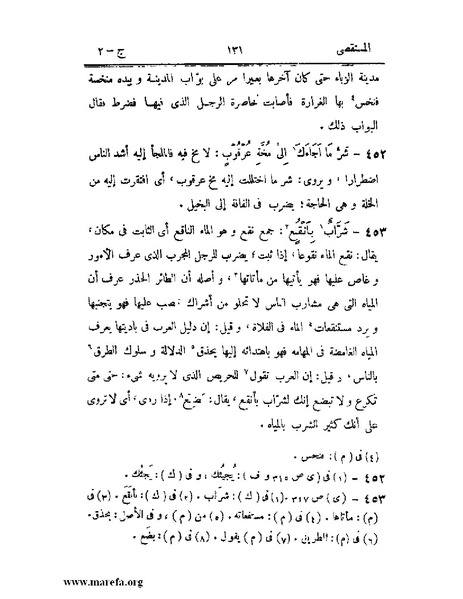 المستقصى ١٣١ ج – ٢
مدينة الزباء حتى كان آخرها بعيرا مر على بوّاب المدينة و بيده منخسة
فنخس٤ بها الغرارة فأصابت خاصرة الرجل الذى فيها فضرط فقال
البواب ذلك .
٤٥٢ – شَرٌّ مَا أَجَاءَكَ١ إِلىٰ مُخَّةِ عُرْقُوبٍ : لا مخ فيه فالملجأ إليه أشد الناس
اضطرارا ، و يروى : شر ما اختللت إليه مخ عرقوب ، أى افتقرت إليه من
الخلة و هى الحاجة ؛ يضرب فى الفاقة إلى البخيل .
٤٥٣ – شَرَّابٌ١ بِأَنْقُعٍ٢ : جمع نقع و هو الماء الناقع أى الثابت فى مكان ،
يقال : نقع الماء نقوعا ، إذا ثبت ؛ يضرب للرجل المجرب الذى عرف الأمور
و غاص عليها فهو يأتيها من مأتاتها٣ ، و أصله أن الطائر الحذر عرف أن
المياه التى هى مشارب الناس لا تخلو من أشراك تنصب عليها فهو يتجنبها
و يرد مستنقعات٤ الماء فى الفلاة ، و قيل : إن دليل العرب فى باديتها يعرف
المياه الغامضة فى المهامه فهو باهتدائه إليها يحذق٥ الدلالة و سلوك الطرق٦
بالناس ، و قيل : إن العرب تقول٧ للحريص الذى لا يرويه شىء : حتى متى
تكرع و لا تبضع إنك لشرّاب بأنقع ، يقال : بَضَع٨ . إذا روى ، أى لا تروى
على أنك كثير الشرب بالمياه .
(٤) فى ( م ) : فنحس .
٤٥٢ – (١) فى ( ى ص ٣١٥ و ف ) : يُجيئُك ، و فى ( ك ) : يَجئك .
٤٥٣ – ( ى ) ص ٣١٧ . (١) فى ( ك ) : شراب . (٢) فى ( ك ) : بأنقَعَ . (٣) فى
(م) : مأتاها . (٤) فى ( م ) : مستنقعاته . (٥) من ( م ) ، و فى الأصل : يحذق .
(٦) فى (م) : الطريق . (٧) فى ( م ) يقول . (٨) فى ( م ) : بضّع .
www.marefa.org